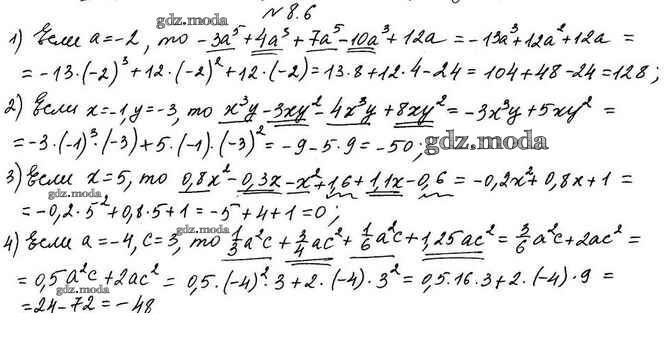 gdz.moda
№ 8.6
1) Если a = -2, то -3a⁵ + 4a³ + 7a⁵ - 10a³ + 12a = -13a³ + 12a² + 12a =
= -13·(-2)³ + 12·(-2)² + 12·(-2) = 13·8 + 12·4 - 24 = 104 + 48 - 24 = 128;
2) Если x = -1, y = -3, то x³y - 3xy² - 4x³y + 8xy² = -3x³y + 5xy² =
= -3·(-1)³·(-3) + 5·(-1)·(-3)² = -9 - 5·9 = -50; gdz.moda
3) Если x = 5, то 0,8x² - 0,3x - x² + 1,6 + 1,1x - 0,6 = -0,2x² + 0,8x + 1 =
gdz.moda
= -0,2·5² + 0,8·5 + 1 = -5 + 4 + 1 = 0;
gdz.moda
4) Если a = -4, c = 3, то 1/3 a²c + 3/4 ac² + 1/6 a²c + 1,25ac² = 3/6 a²c + 2ac² =
= 0,5a²c + 2ac² = 0,5·(-4)²·3 + 2·(-4)·3² = 0,5·16·3 + 2·(-4)·9 =
gdz.moda
= 24 - 72 = -48